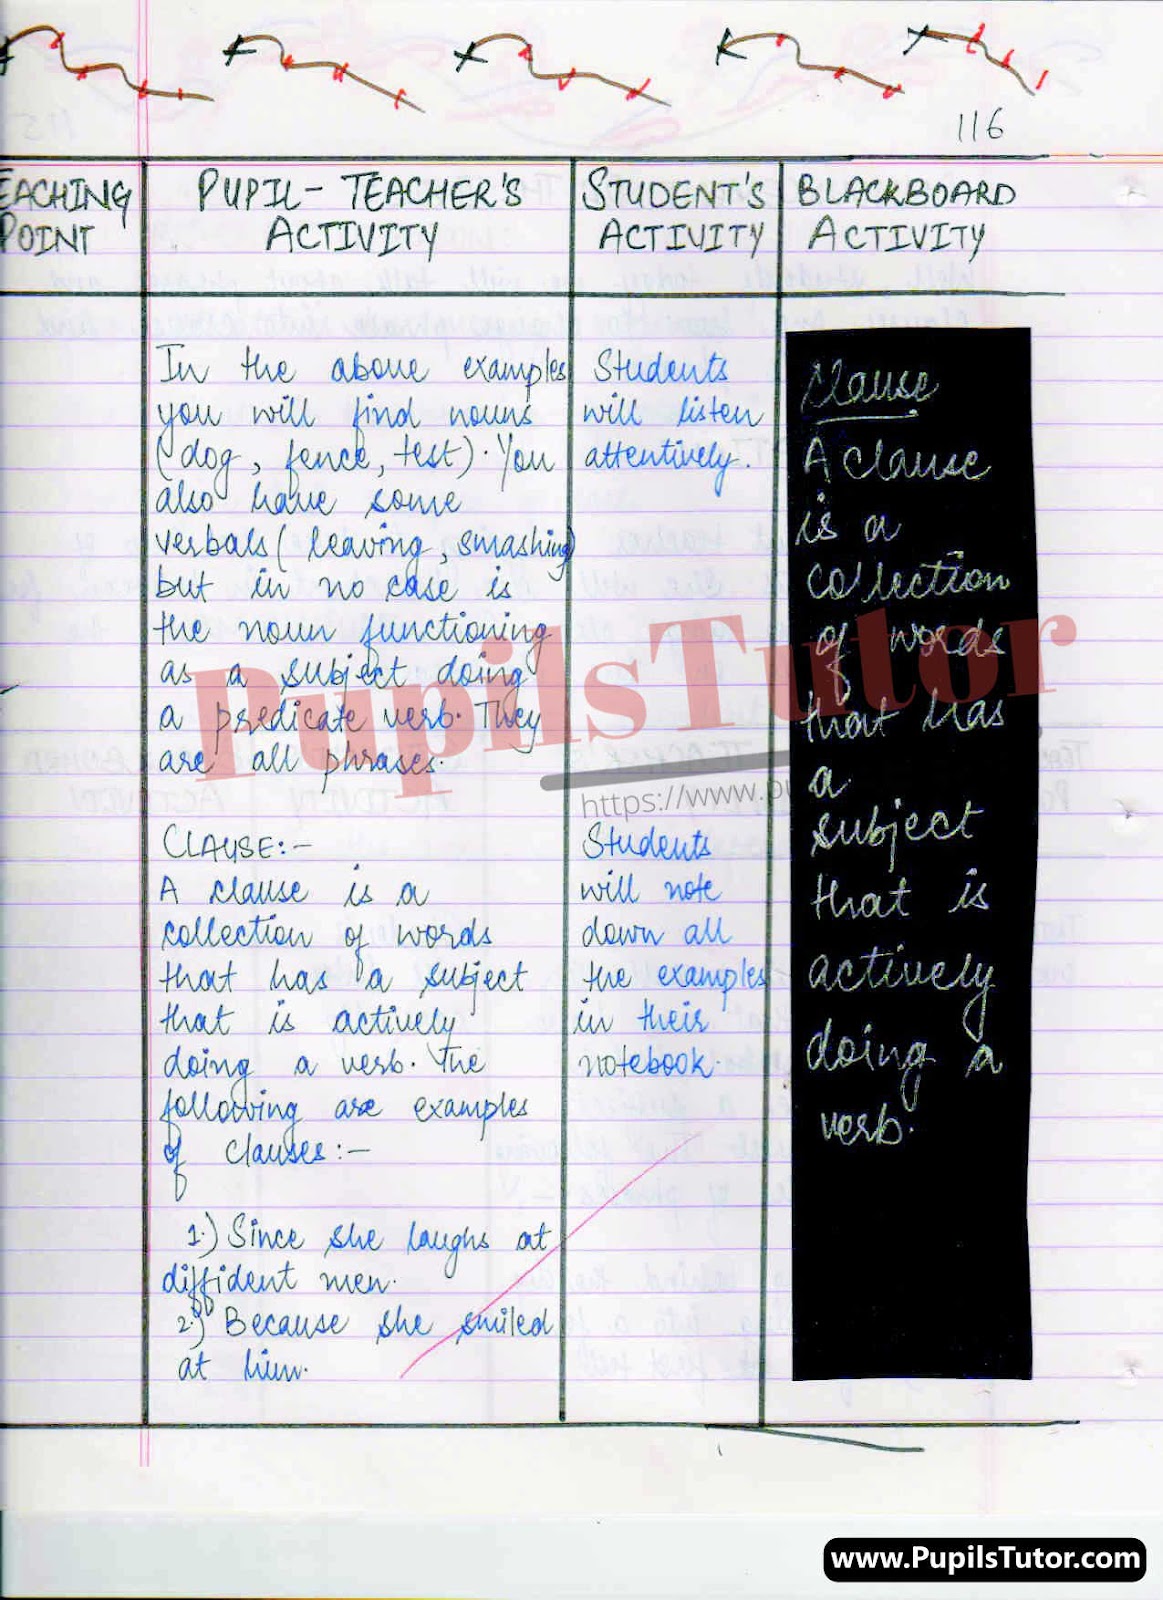 116
EACHING
POINT
PUPIL- TEACHER'S
ACTIVITY
STUDENT'S
ACTIVITY
BLACKBOARD
ACTIVITY
In the above examples
you will find nouns
(dog, fence, test). You
also have some
verbals (leaving, smashing)
but in no case is
the noun functioning
as a subject doing
a predicate verb. They
are all phrases.
CLAUSE:-
A clause is a
collection of words
that has a subject
that is actively
doing a verb. The
following are examples
of clauses:-
1.) Since she laughs at
diffident men.
2.) Because she smiled
at him.
Students
will listen
attentively.
Students
will note
down all
the examples
in their
notebook.
Clause
A clause
is a
collection
of words
that has
a
subject
that is
actively
doing a
verb.
PupilsTutor
https://www.pu
www.PupilsTutor.com